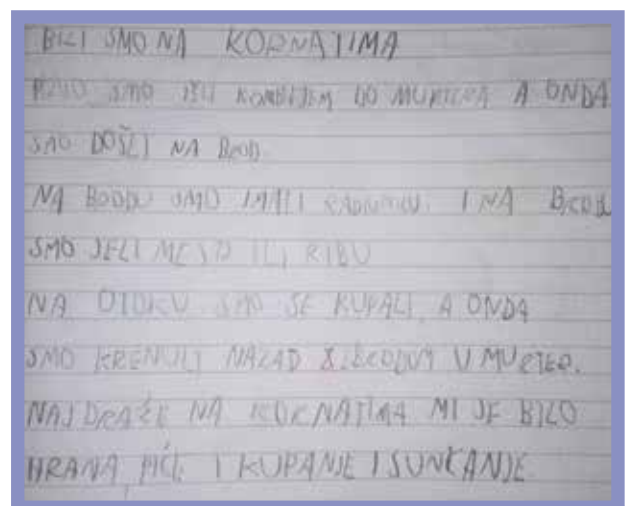 BILI SMO NA KORNATIMA
PRVO SMO IŠLI KOMBIJEM DO MURTERA A ONDA
SMO DOŠLI NA BROD.
NA BRODU SMO IMALI I NA BRODU
SMO JELI MESO ILI RIBU
NA OTOKU SMO SE KUPALI, A ONDA
SMO KRENULI NAZAD S BRODOM U MURTER.
NAJDRAŽE NA KORNATIMA MI JE BILO
HRANA, PIĆE I KUPANJE I SUNČANJE